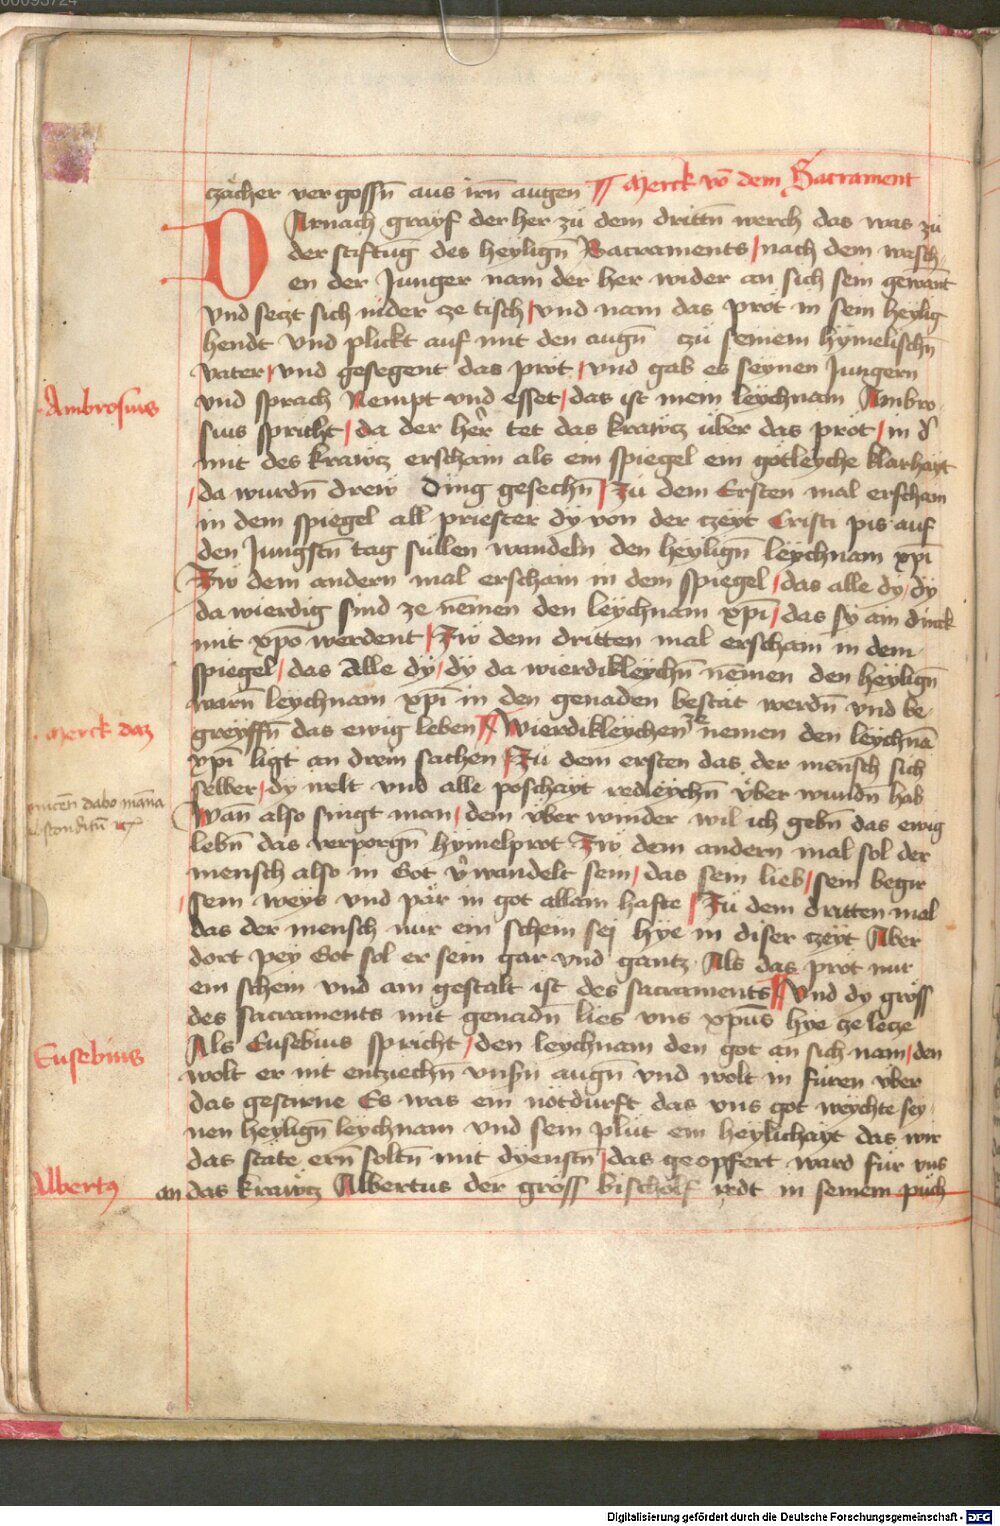 czächer vergossñ aus irñ augen Merck võ dem Sacrament
DArnach grayf der her zu dem drittñ werch das was zu
der stiftũg des heyligñ Sacraments / nach dem wesch
en der Junger nam der her wider an sich sein gewant
vnd seczt sich nider ze tisch / vnd nam das prot in sein heylig
hendt vnd plickt auf mit den augñ czu seinem hymelischñ
vater / vnd gesegent das prot / vnd gab es seynen Jungern
Ambrosius
vnd sprach Nempt vnd esset / das ist mein leychnam Ambro
sius spricht / da der her tet das krawcz über das prot / in d
mit des krawcz erscham als ein spiegel ein götleyche klarhayt
/ da wurdñ drew ding gesechñ / Zu dem Ersten mal erscham
in dem spiegel all priester dy von der czeyt Cristi pis auf
den Jungstñ tag süllen wandeln den heyligñ leychnam xp̄i
Zw dem andern mal erscham in dem spiegel / das alle dy / dy
da wierdig sind ze nẽmen den leychnam xp̄i / das sy ain dinck
mit xp̄o werdent / Zw dem dritten mal erscham in dem
spiegel / das Alle dy / dy da wierdikleychñ nẽmen den heyligñ
warñ leychnam xp̄i in den genaden bestät werdñ vnd be
Merck daz
greyffñ das ewig leben Wierdikleychen nemen den leychnã
xp̄i ligt an drein sachen / Zu dem ersten das der mensch sich
selber / dy welt vnd alle poschayt redleychñ über wundñ hab
vincenti dabo mãna
absconditũ
Wan also singt man / dem über winder wil ich gebñ das ewig
lebñ das verporgñ hymelprot Zw dem andern mal sol der
mensch also in Got vwandelt sein / das sein lieb / sein begir
/ sein weys vnd pär in got allain hafte / Zu dem dritten mal
das der mensch nur ein schein sej hye in diser czeyt Aber
dort pey Got sol er sein gar vnd gantz Als das prot nur
ein schein vnd ain gestalt ist des sacraments vnd dy gröss
des sacraments mit genadñ lies vns xpūs hye ze lecze
Eusebius
Als Eusebius spricht / den leychnam den got an sich nam / den
wolt er nit entziechñ vnsñ augñ vnd wolt in füren über
das gestirne Es was ein nötdurft das vns got weychte sey
nen heyligñ leychnam vnd sein plut ein heylichayt das wir
das stäte erñ soltñ mit dyenstñ / das geopfert ward für vns
Albertus
an das krawcz Albertus der gröss bischolf redt in seinem püch
Digitalisierung gefördert durch die Deutsche Forschungsgemeinschaft - DFG